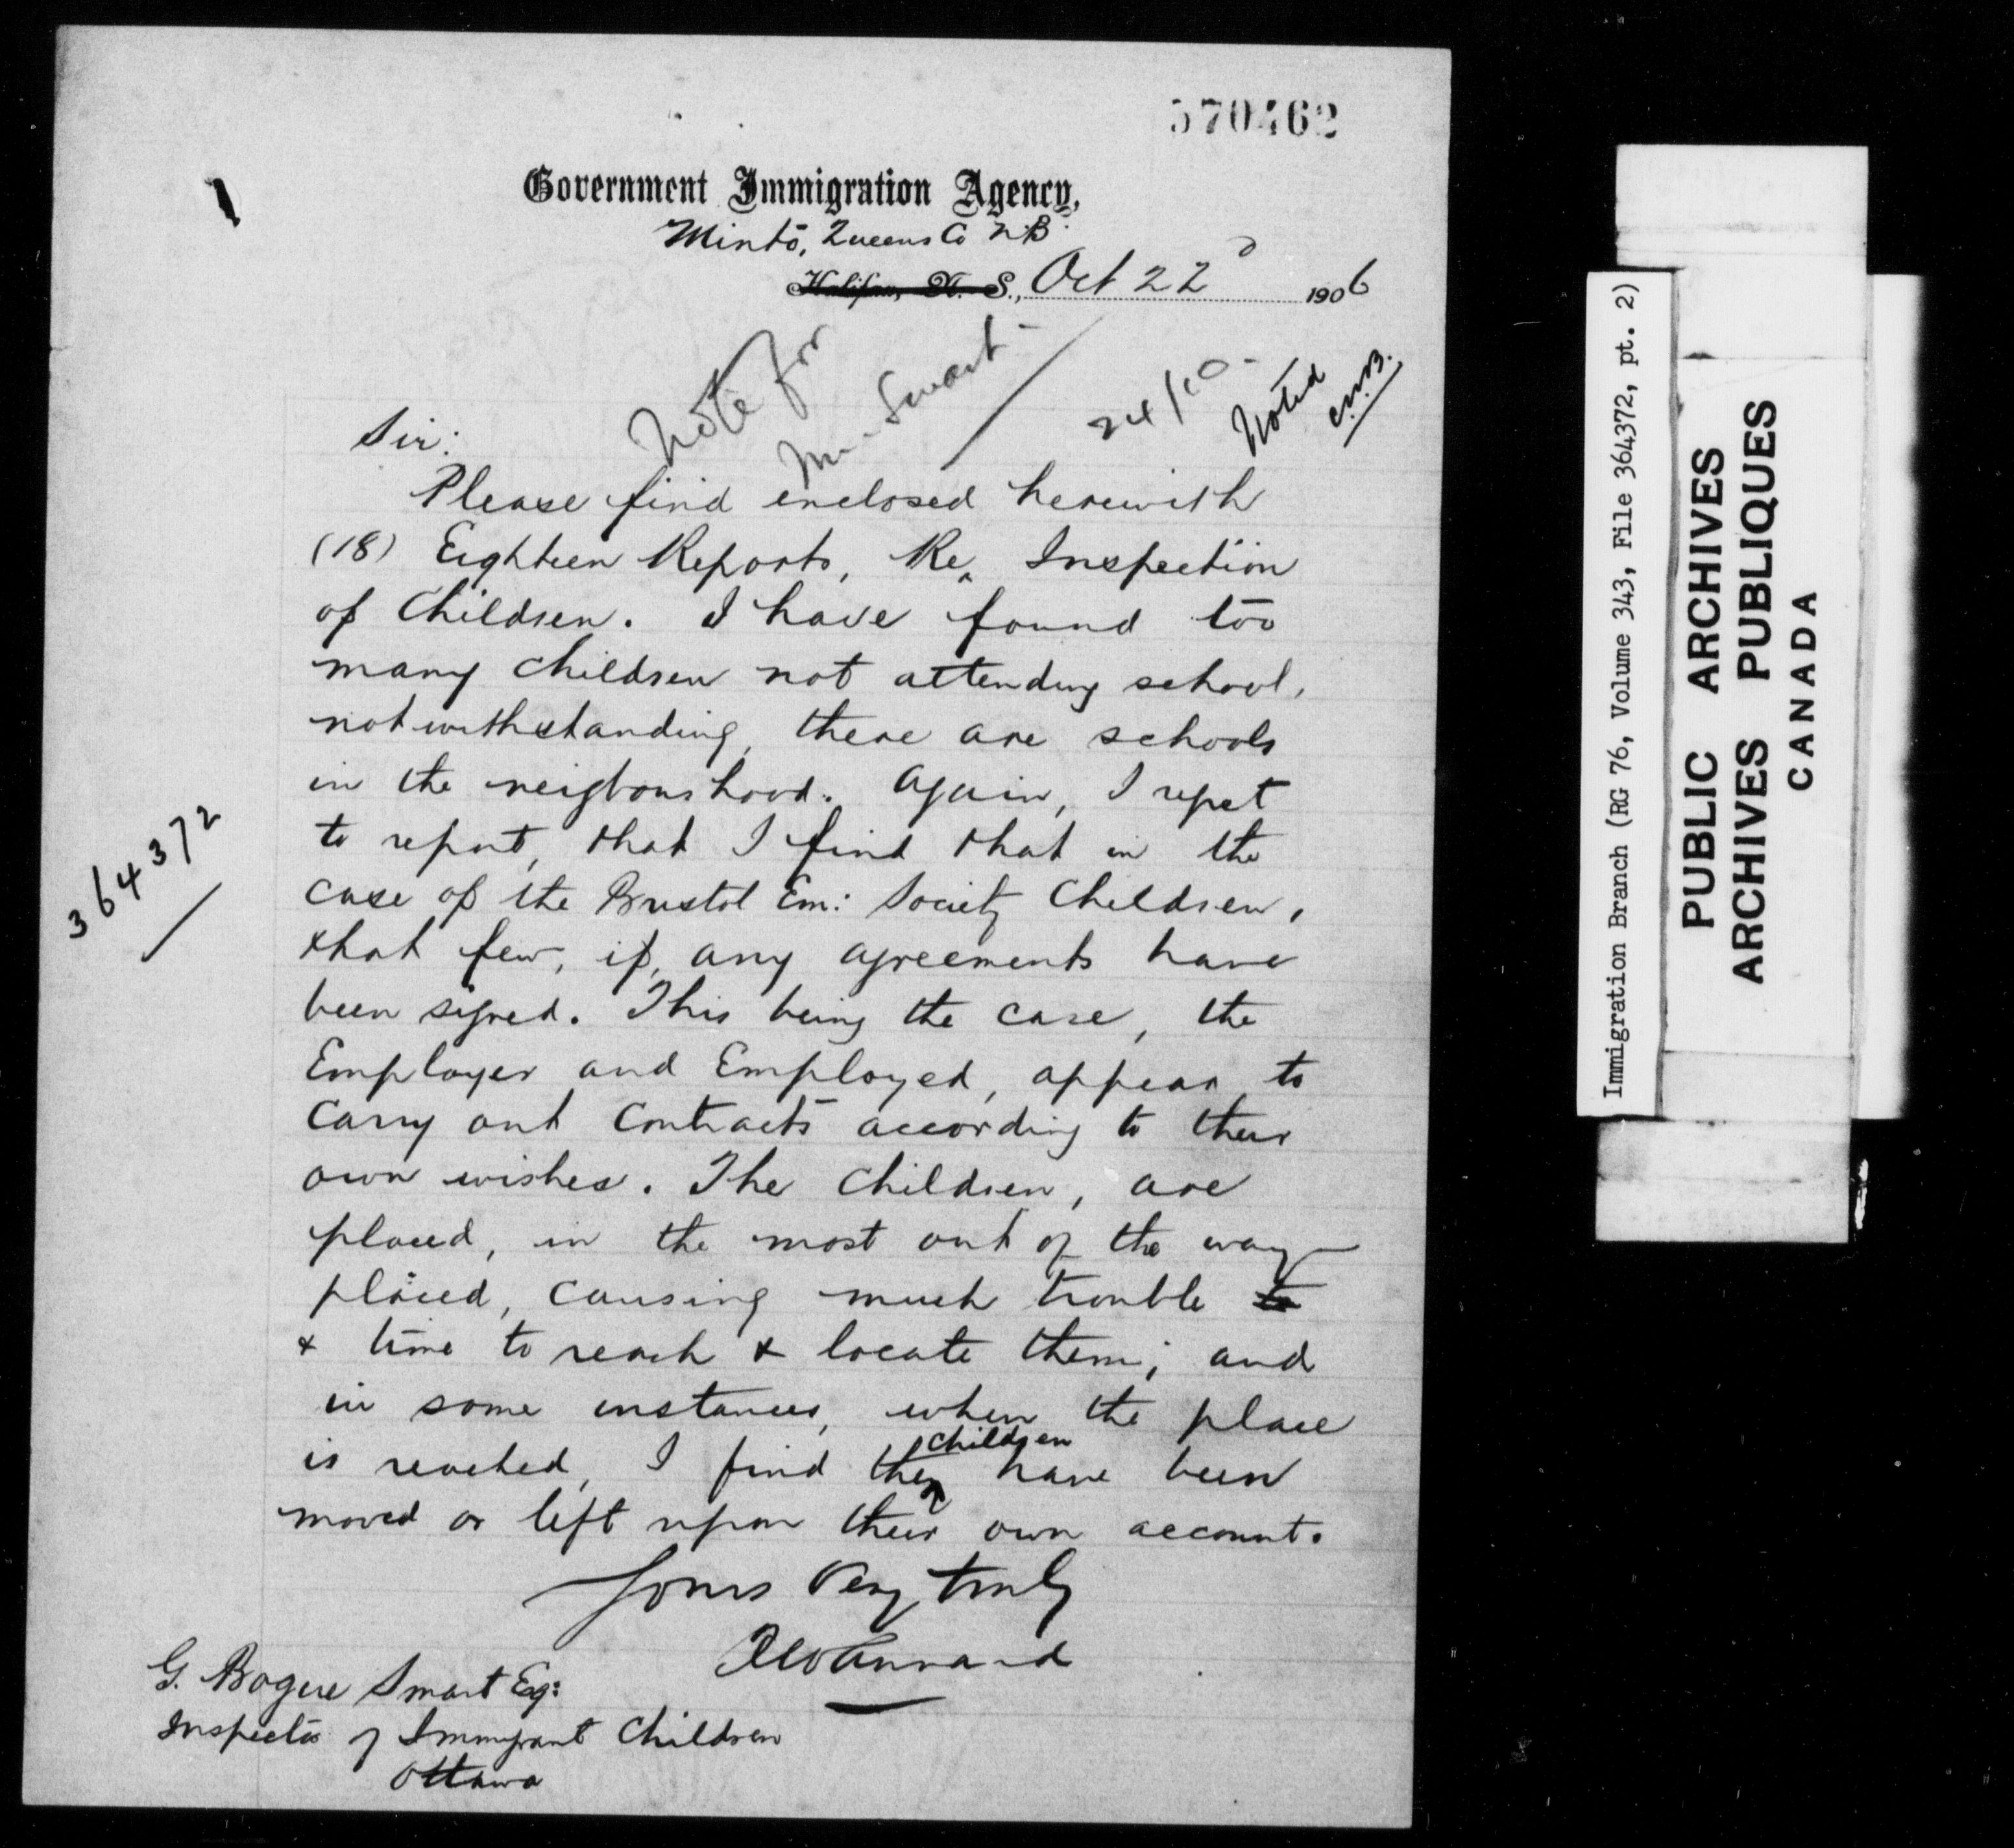 570462
Government Immigration Agency,
Minto, Queens Co N.B.
Halifax, N. S., Oct 22 1906
Note for
Mr. Smart
24/10
Noted
Sir:
Please find enclosed herewith
(18) Eighteen Reports, Re, Inspection
of Children. I have found too
many children not attending school,
notwithstanding, there are schools
in the neigbourhood. Again, I regret
to report, that I find that in the
case of the Bristol Em: Society Children,
that few, if, any agreements have
been signed. This being the case, the
Employer and Employed, appear to
carry out contracts according to their
own wishes. The children, are
placed, in the most out of the way
placed, causing much trouble to
& time to reach & locate them; and
in some instances, when the place
is reached, I find the children have been
moved or left upon their own account.
Yours Very truly
G. Bogue Smart Esq:
Inspector of Immigrant Children
Ottawa
364372
Immigration Branch (RG 76, Volume 343, File 364372, pt. 2)
PUBLIC ARCHIVES
ARCHIVES PUBLIQUES
CANADA